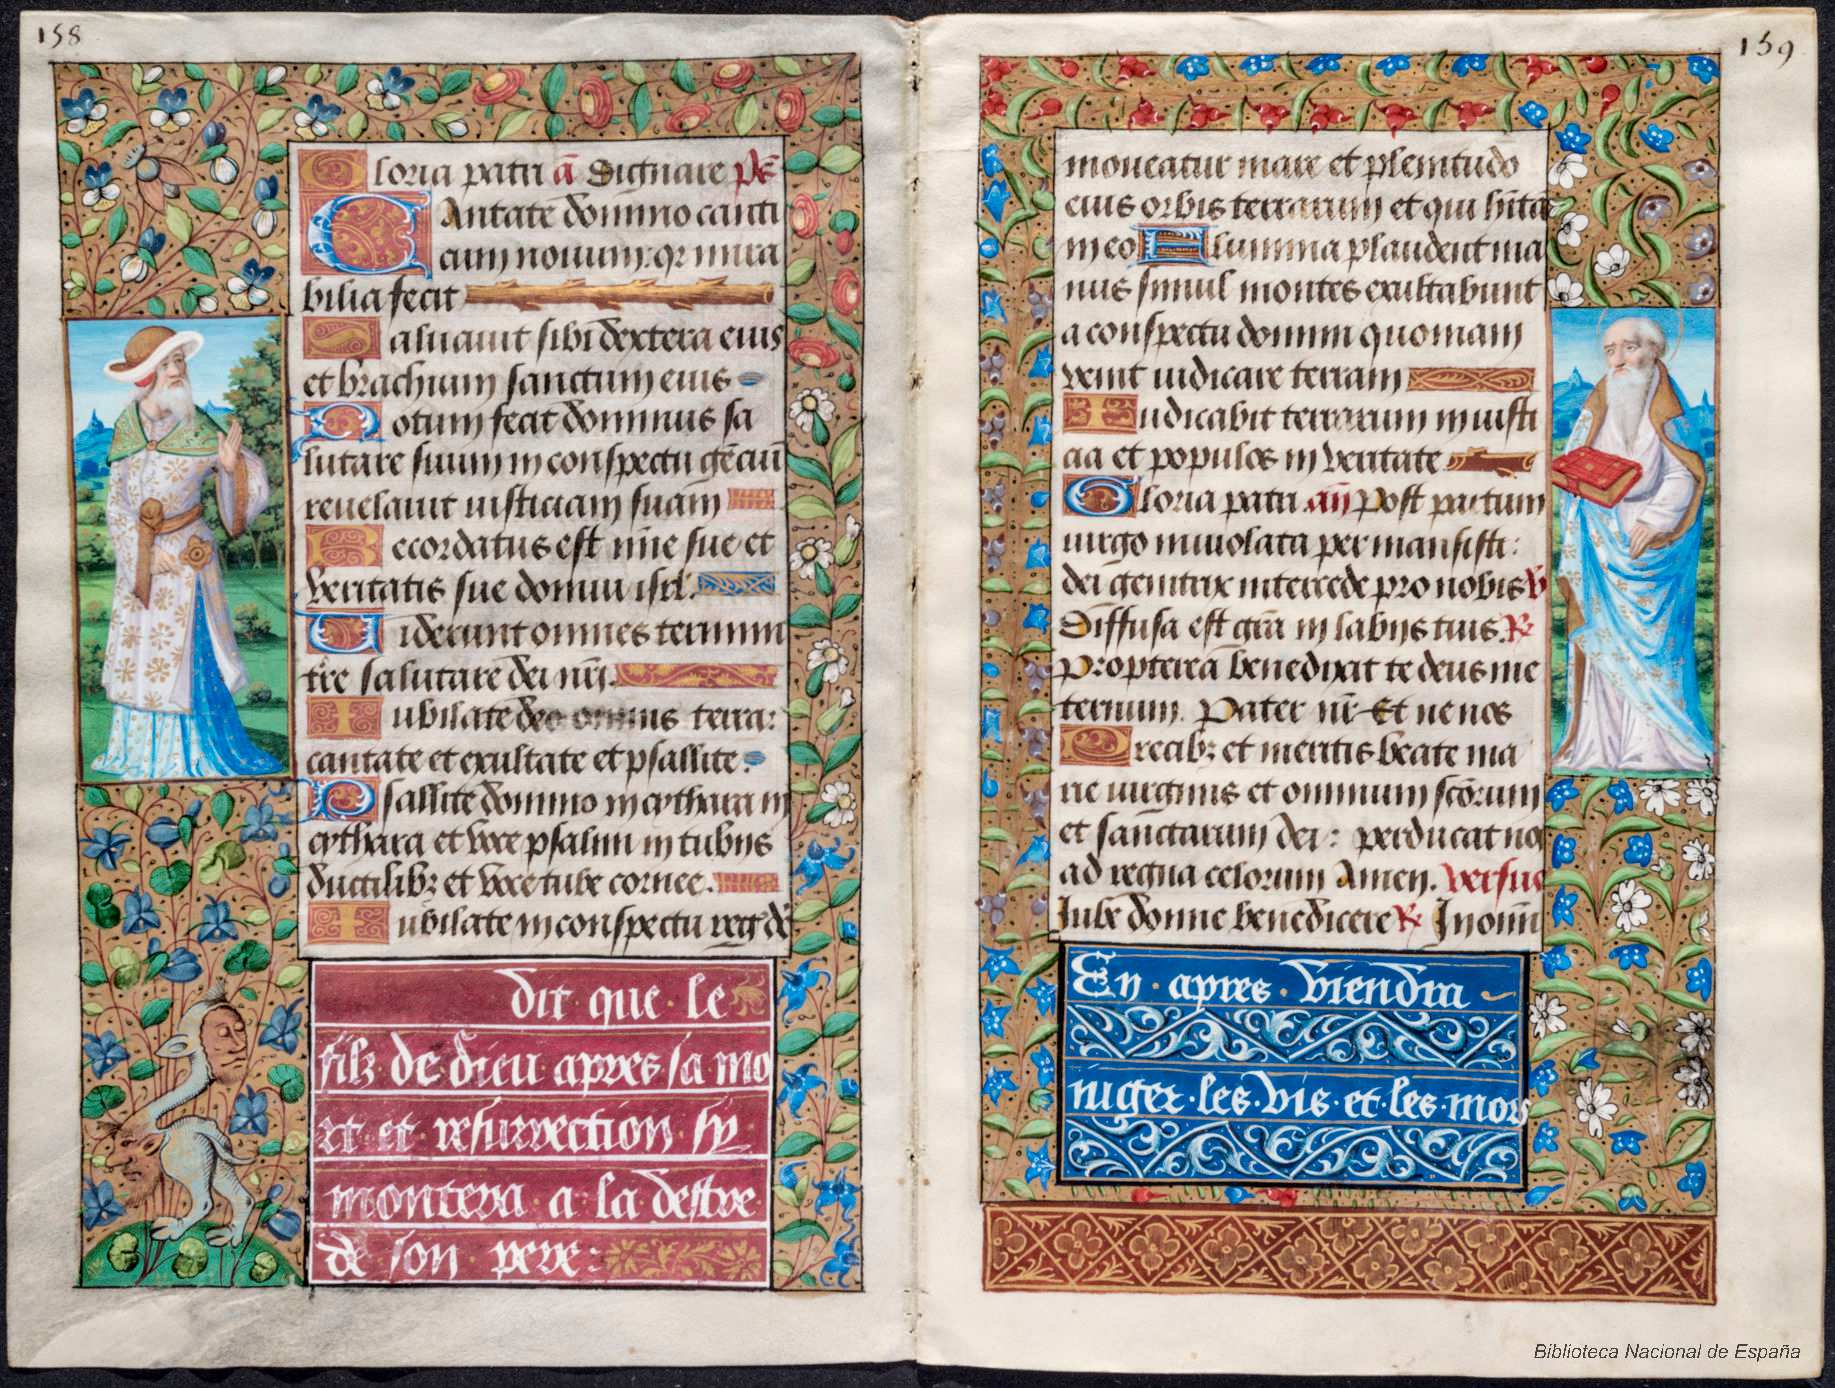 158
Gloria patri añ Dignare ps̄
Cantate domino canti
cum novum: qr mira
bilia fecit
Salvavit sibi dextera eius
et brachium sanctum eius
Notum fecit dominus sa
lutare suum in conspectu gēciū
revelavit iusticiam suam
Recordatus est mīe sue et
veritatis sue domui isrl.
Viderunt omnes termini
tr̄e salutare dei nr̄i.
Iubilate deo omnis terra:
cantate et exultate et psallite.
Psallite domino in cythara in
cythara et voce psalmi in tubis
ductilibꝫ et voce tube cornee.
Iubilate in conspectu reḡ dn̄
dit · que · le
filz · de dieu apres sa mo
rt et resurrection sy
montera · a · la destre
de son pere :
159
moveatur mare et plenitudo
eius orbis terrarum et qui hītāt
in eo Flumina plaudent ma
nus simul montes exultabunt
a conspectu domini quoniam
venit iudicare terram
Iudicabit terrarum in iusti
cia et populos in veritate.
Gloria patri. añ Post partum
virgo inviolata permansisti:
dei genitrix intercede pro nobis ℣
Diffusa est gr̄a in labijs tuis. ℟
Propterea benedixit te deus in e
ternum. Pater nr̄ Et ne nos
Precibꝫ et meritis beate ma
rie virginis et omnium scōrum
et sanctarum dei: perducat nos
ad regna celorum Amen. Versus
Iube donne benedicere ℟ In oim̄
En · apres · viendra
iuger · les · vis · et · les · mors
Biblioteca Nacional de España